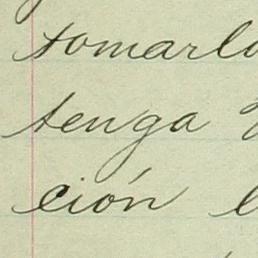 tomarlo
tenga
ción